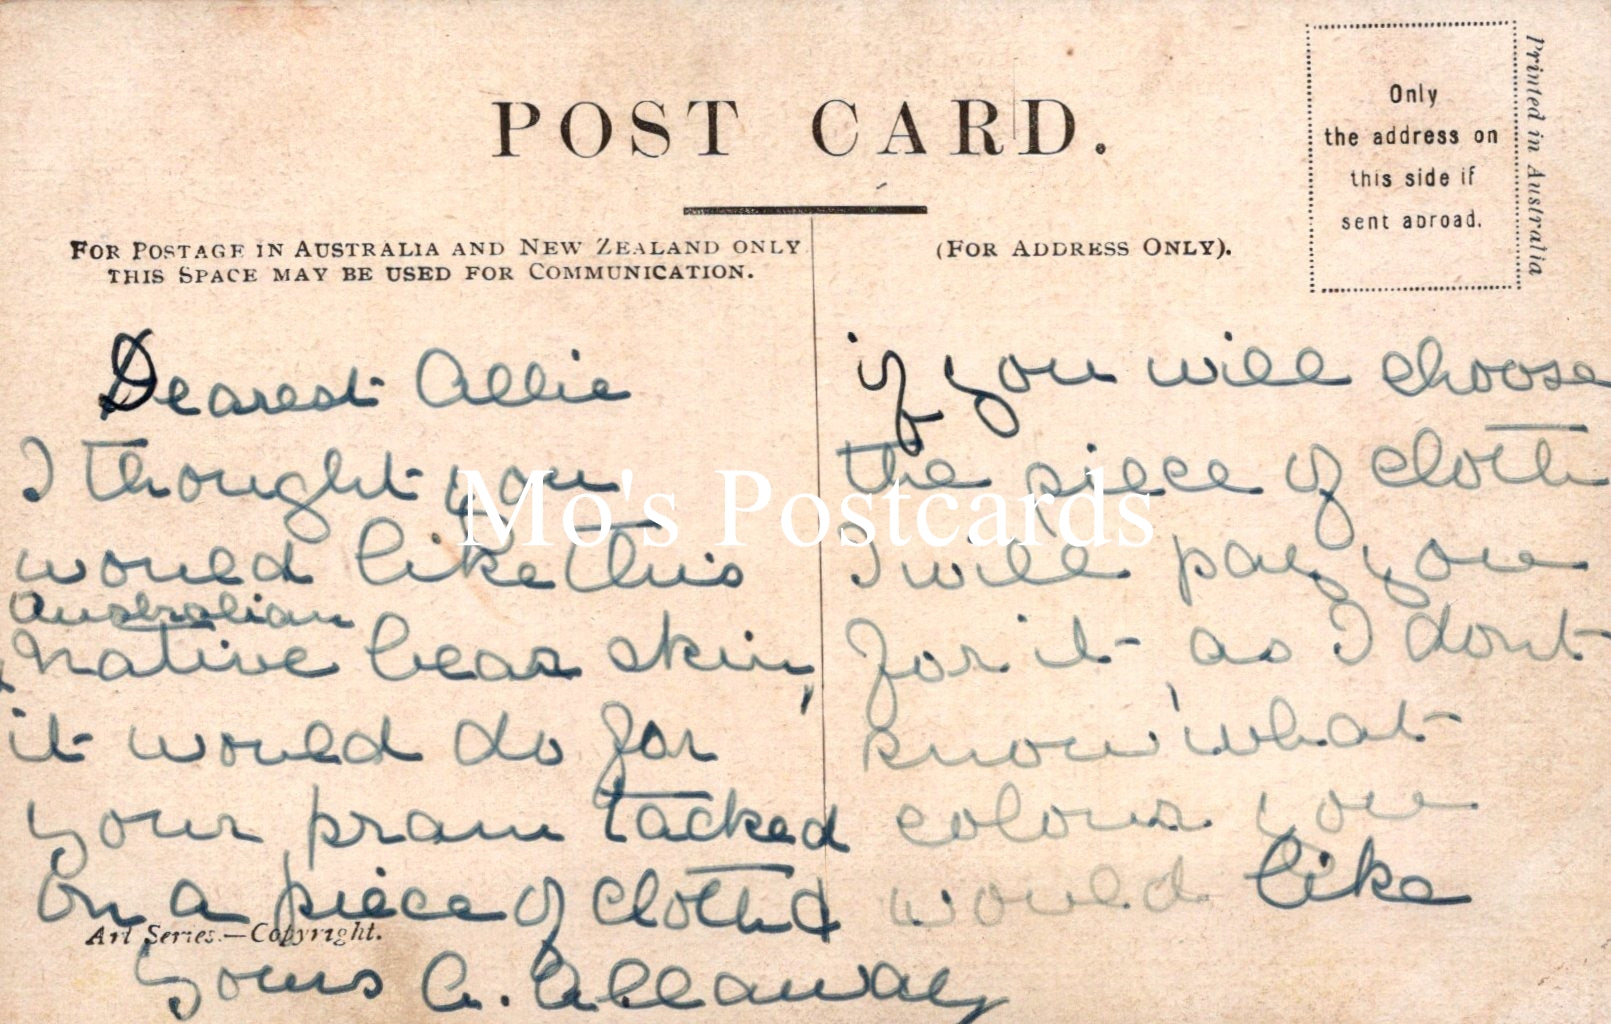 POST CARD.
Only
the address on
this side if
sent abroad.
Printed in Australia
FOR POSTAGE IN AUSTRALIA AND NEW ZEALAND ONLY
THIS SPACE MAY BE USED FOR COMMUNICATION.
(FOR ADDRESS ONLY).
Dearest Allie
I thought you
would like this
Australian
native bear skin,
it would do for
your pram tacked
on a piece of cloth &
if you will choose
the piece of cloth
I will pay you
for it as I dont
know what
colour you
would like
yours A. Allaway
Art Series.—Copyright.
Mo's Postcards